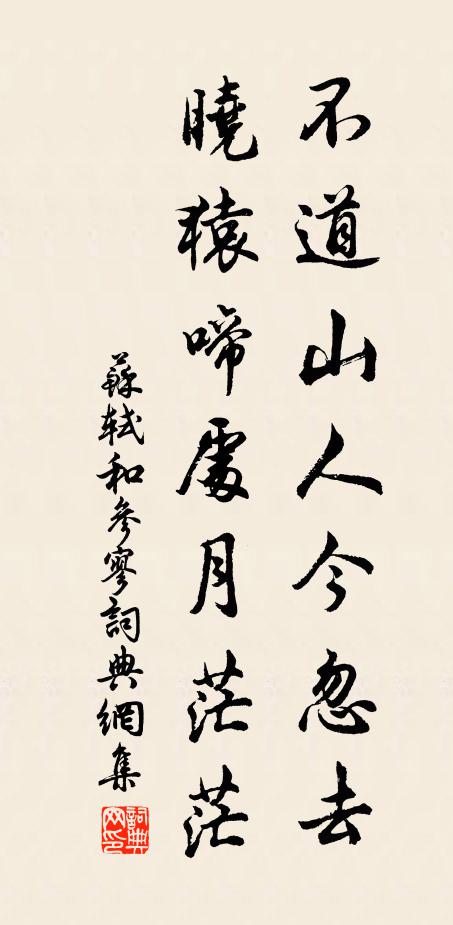 不道山人今忽去
曉猿啼處月茫茫
蘇軾和參寥詞典網集
詞典網印